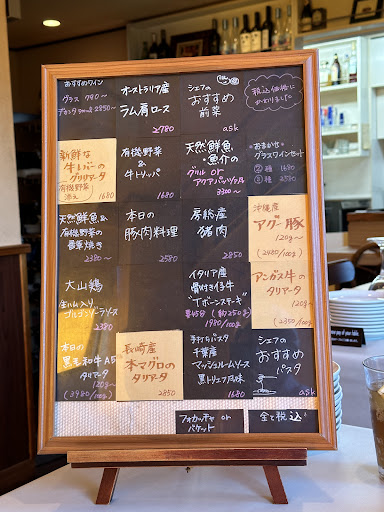 おすすめワイン
グラス 790〜
デカンタ 500ml 2850〜
オーストラリア産
ラム肩ロース
2780
シェフの
おすすめ
前菜
ask
税込価格に
かわりました
新鮮な
牛レバーの
グリリアータ
有機野菜
添え
1680
有機野菜&
牛トリッパ
1680
天然鮮魚・
魚介の
グリル or
アクアパッツァ
3300〜
おまかせ
グラスワインセット
②種 1680
③種 2380
天然鮮魚&
有機野菜の
香草焼き
2380〜
本日の
豚肉料理
2580
房総産
猪肉
2850
沖縄産
アグー豚
120g〜
(2480/100g)
大山鶏
生ハム入り
ゴルゴンゾーラソース
2380
イタリア産
骨付き仔牛
"Tボーンステーキ"
(約250g)
1980/100g
アンガス牛の
タリアータ
120g〜
(2350/100g)
本日の
黒毛和牛A5
タリアータ
120g〜
(3480/100g)
長崎産
本マグロの
タリアータ
2850
手打ちパスタ
千葉産
マッシュルームソース
黒トリュフ風味
1680
シェフの
おすすめ
パスタ
ask
フォカッチャ or
バケット
全て税込